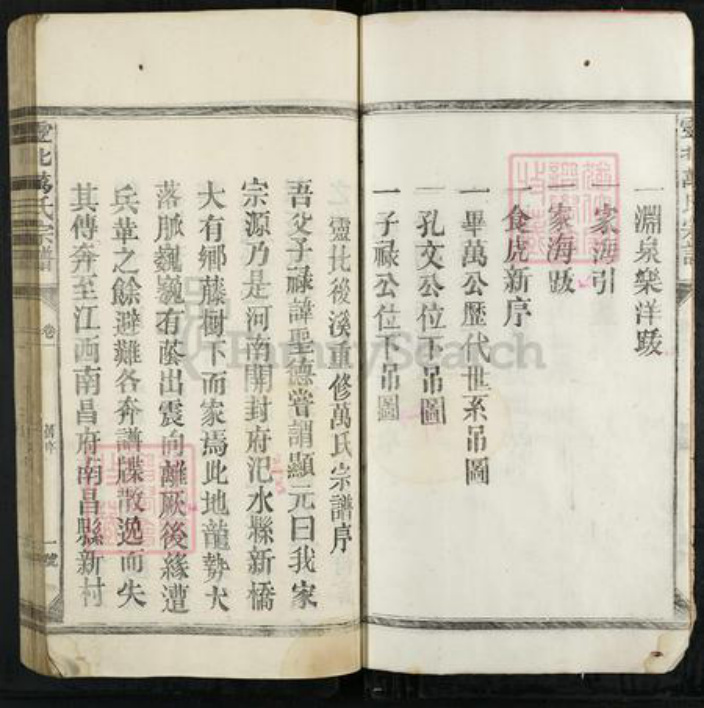 一淵泉樂洋跋
一家海引
一家海跋
一食虎新序
一畢萬公歷代世系吊圖
一孔文公位下吊圖
一子祿公位下吊圖
靈北後溪重修萬氏宗譜序
吾父子祿諱聖德嘗謂顯元曰我家
宗源乃是河南開封府汜水縣新橋
大有鄉藤樹下而家焉此地龍勢大
落脈巍巍有蔭出震向離厥後緣遭
兵革之餘避難各奔譜牒散逸而失
其傳奔至江西南昌府南昌縣新村
靈北萬氏宗譜
卷一
舊序
一號
FamilySearch